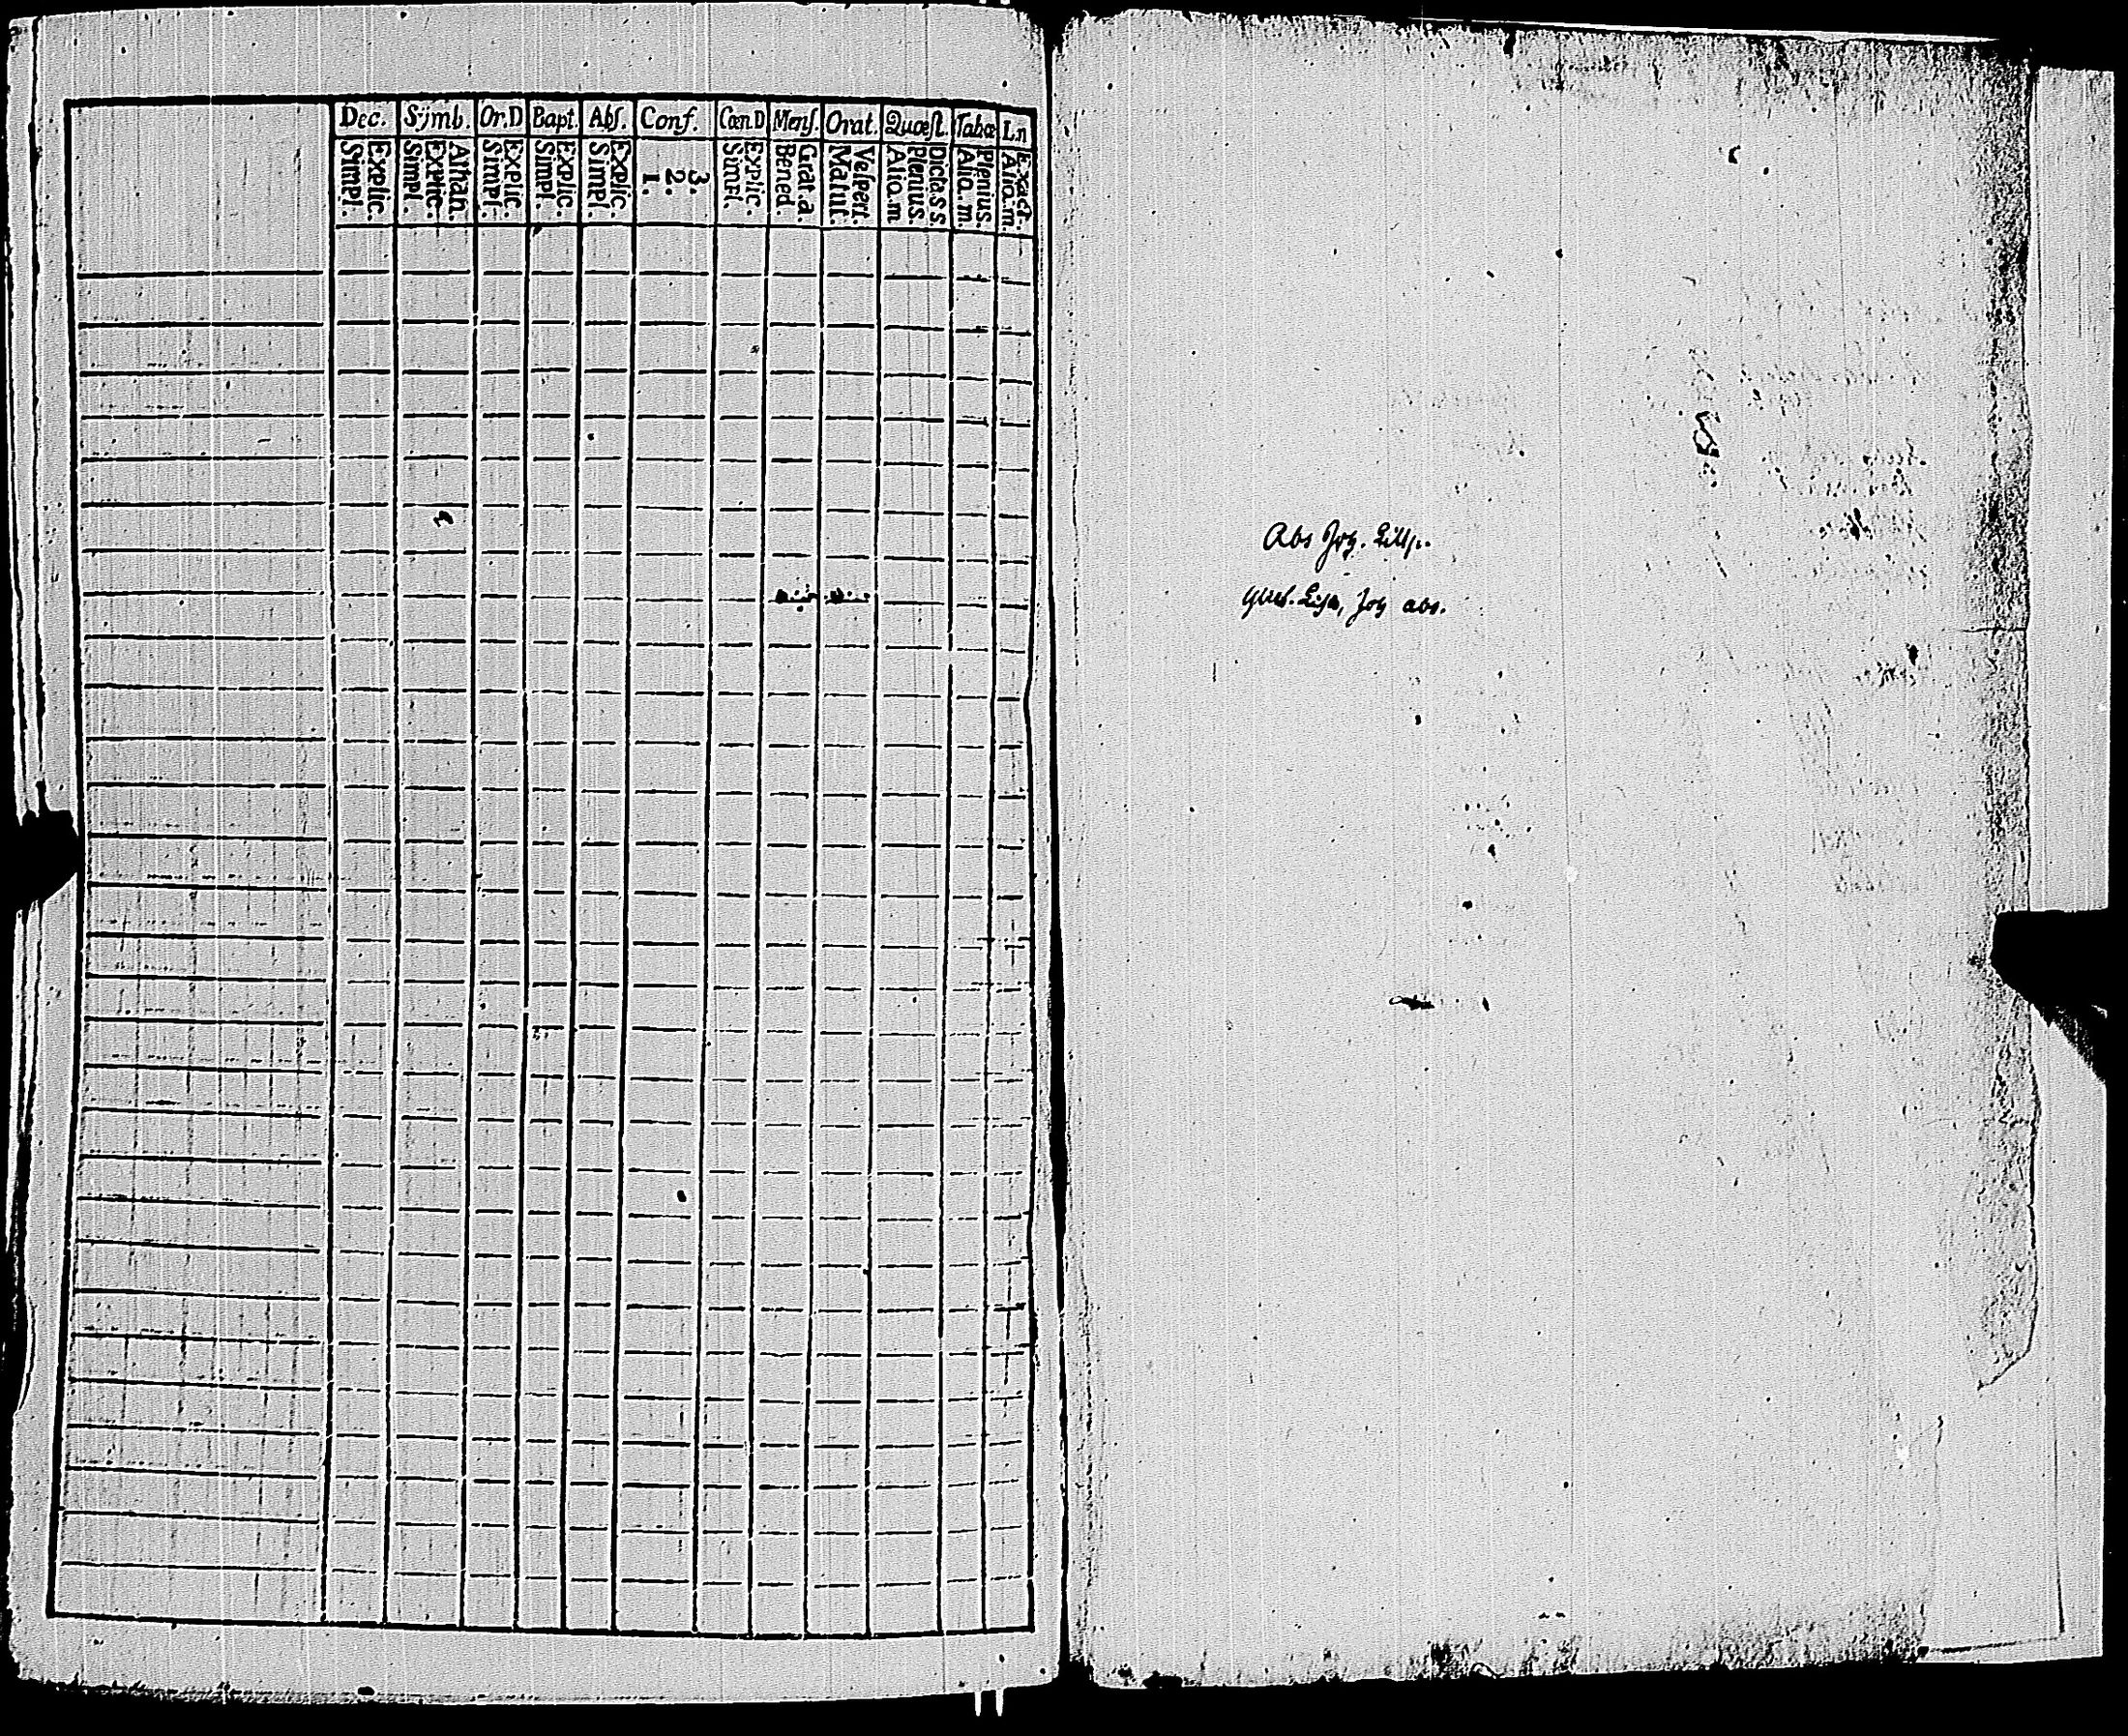 Dec. Symb. Or.D Bapt. Abſ. Conf. CœnD Menſ. Orat. Quœſt. Tabœ Ln
Explic. Simpl.
Athan. Explic. Simpl.
Explic. Simpl.
Explic. Simpl.
Explic. Simpl.
3. 2. 1.
Explic. Simpl.
Grat.a. Bened.
Veſpert. Matut.
Dicta.s s. Plenius. Aliq.m
Plenius. Aliq.m
Exact. Aliq.m.
Abs
abs.